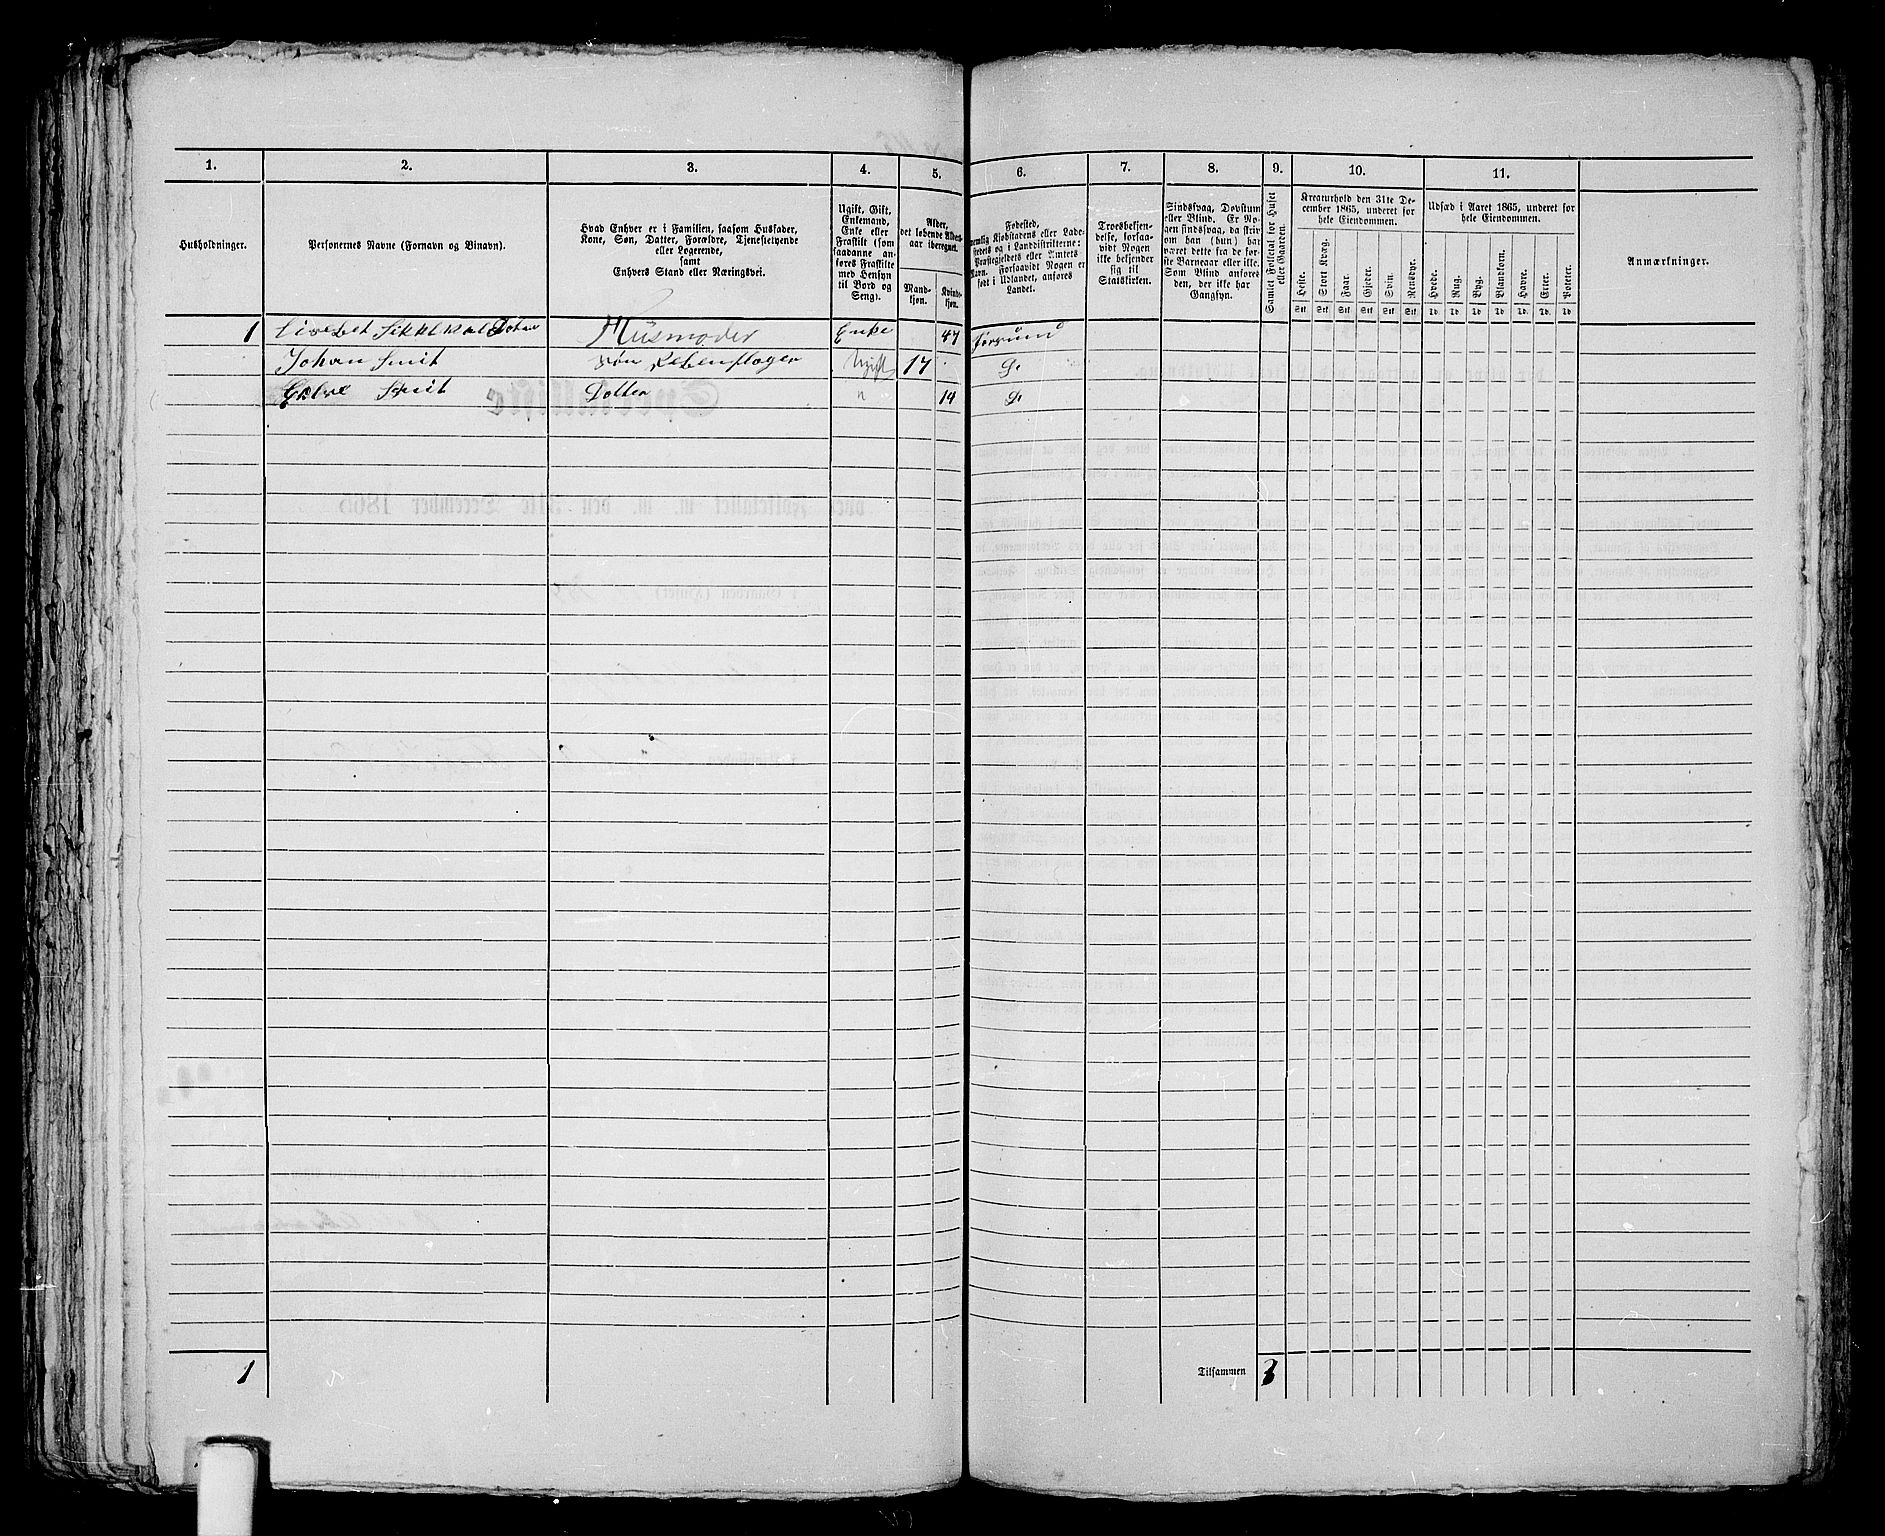 1.
2.
3.
4.
5.
6.
7.
8.
9.
10.
11.
Husholdninger.
Personernes Navne (Fornavn og Binavn).
Hvad Enhver er i Familien, saasom Husfader,
Kone, Søn, Datter, Forældre, Tjenestetyende
eller Logerende,
samt
Enhvers Stand eller Næringsvei.
Ugift, Gift,
Enkemand,
Enke eller
Fraskilt (som
saadanne an-
føres Fraskilte
med Hensyn
til Bord og
Seng).
Alder,
det løbende Alders-
aar iberegnet.
Mand-
kjøn.
Kvinde-
kjøn.
Fødested,
nemlig Kjøbstadens eller Lade-
stedets og i Landdistrikterne:
Præstegjeldets eller Amtets
Navn. Forsaavidt Nogen er
født i Udlandet, anføres
Landet.
Troesbekjen-
delse, forsaa-
vidt Nogen
ikke bekjender
sig til
Statskirken.
Sindssvag, Døvstum
eller Blind. Er No-
gen sindssvag, da skriv
om han (hun) har
været dette fra de før-
ste Barneaar eller ikke.
Som Blind anføres
den, der ikke har
Gangsyn.
Samlet Folketal for Huset
eller Gaarden.
Kreaturhold den 31te De-
cember 1865, underet for
hele Eiendommen.
Heste.
Stort Kvæg.
Faar.
Gjeder.
Svin.
Rensdyr.
Stk Stk Stk Stk Stk Stk
Udsæd i Aaret 1865, underet for
hele Eiendommen.
Hvede.
Rug.
Byg.
Blandkorn.
Havre.
Erter.
Poteter.
Td Td Td Td Td Td Td
Anmærkninger.
1 Husmoder Enke 47
Johan Smit Søn Ugift 17 Do
Smit Dotter " 14 Do
1 Tilsammen 3